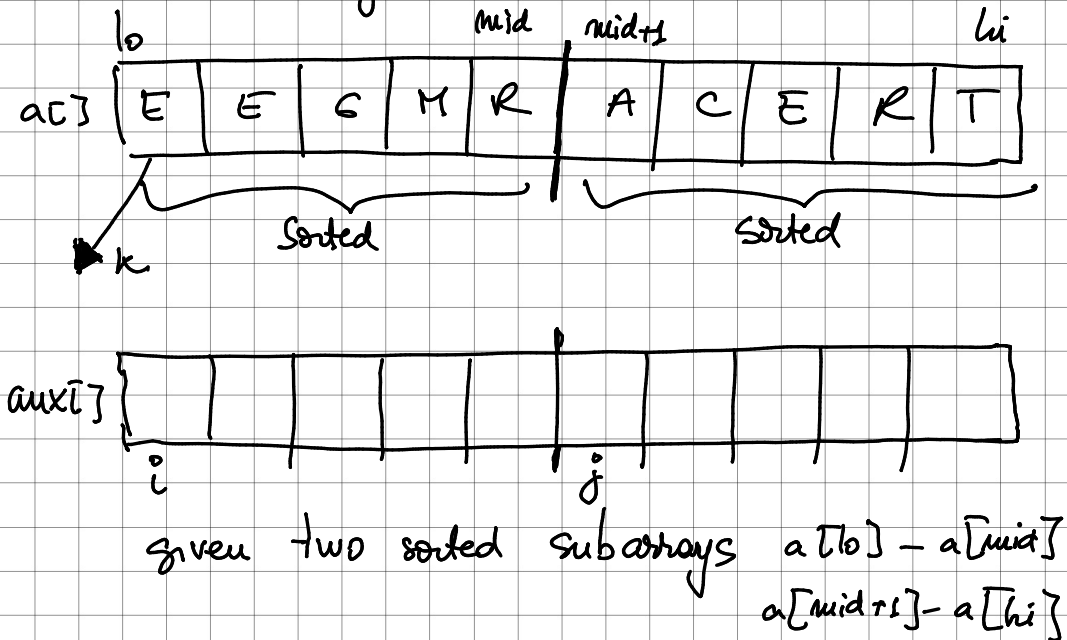 lo mid mid+1 hi
a[] E E G M R A C E R T
sorted sorted
k
aux[]
i j
given two sorted subarrays a[lo] - a[mid]
a[mid+1] - a[hi]